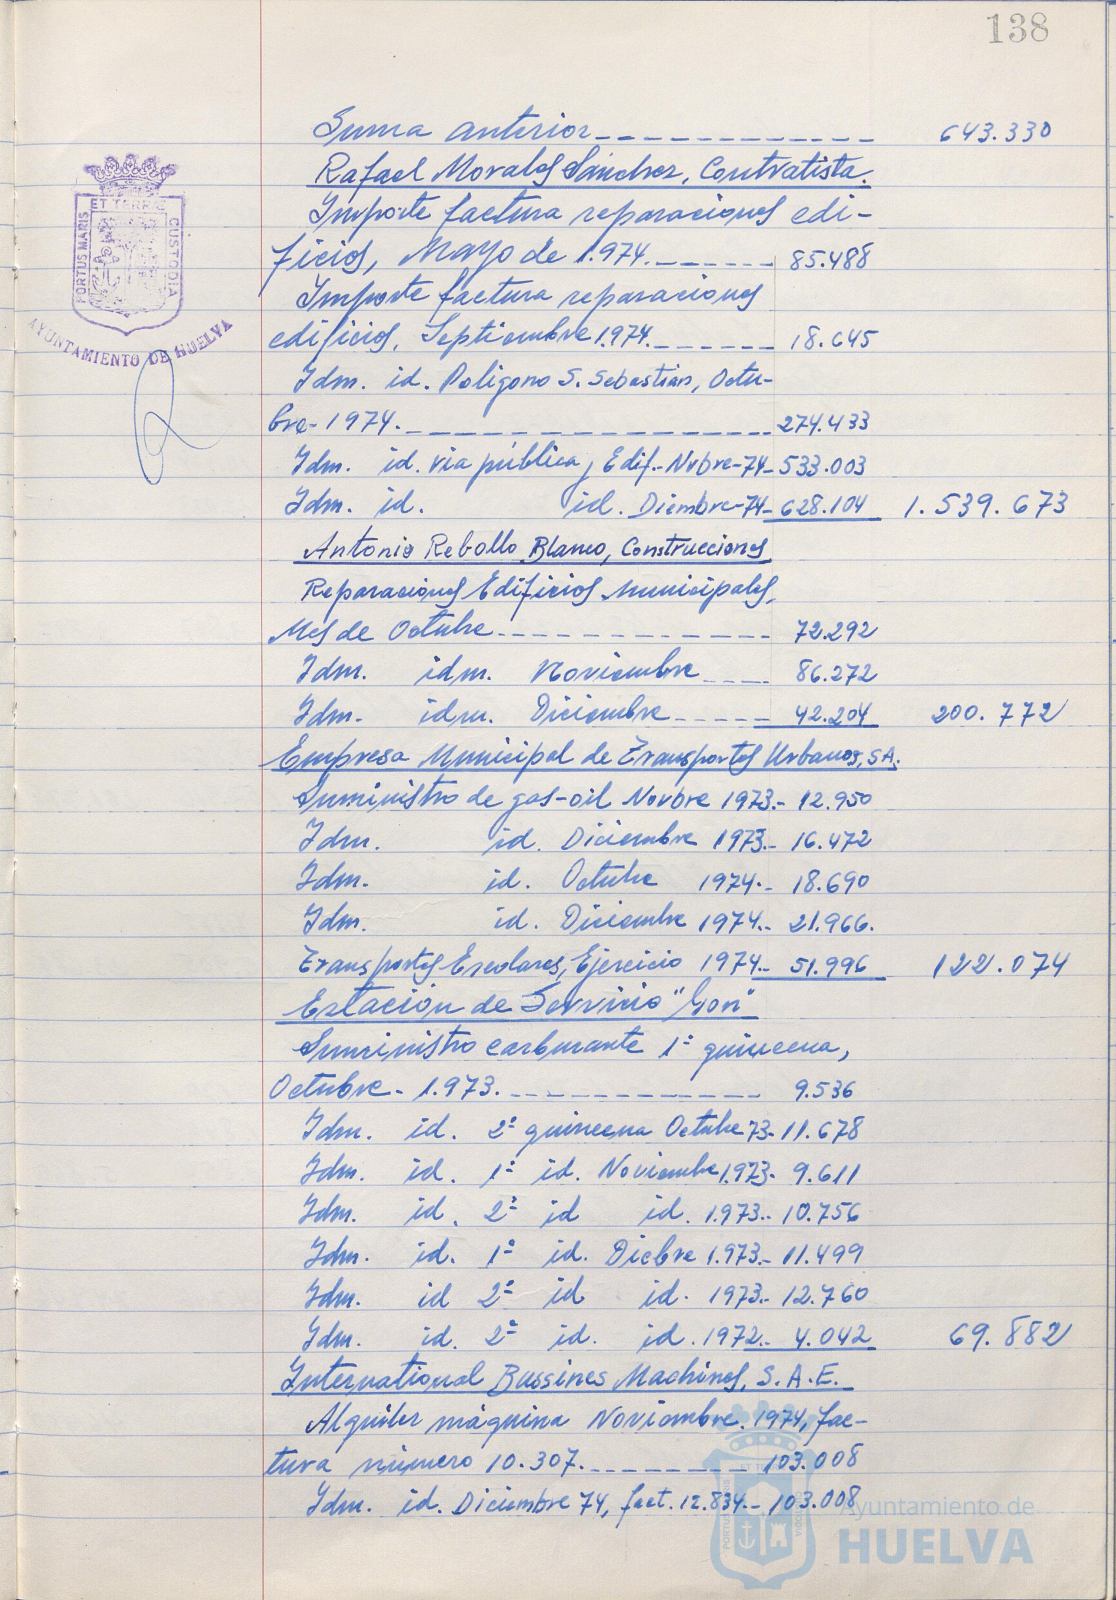 138
Suma anterior 643.330
Rafael Morales Sánchez, Contratista.
Importe factura reparaciones edi-
ficios, Mayo de 1.974. 85.488
Importe factura reparaciones
edificios, Septiembre 1.974. 18.645
Idm. id. Poligono S. Sebastian, Octu-
bre-1974. 274.433
Idm. id. via pública y Edif.-Nvbre-74- 533.003
Idm. id. id. Diembre-74- 628.104 1.539.673
Antonio Rebollo Blanco, Construcciones
Reparaciones Edificios Municipales,
Mes de Octubre 72.292
Idm. idm. Noviembre 86.272
Idm. idm. Diciembre 42.204 200.772
Empresa Municipal de Transportes Urbanos, S.A.
Suministro de gas-oil Novbre 1973.- 12.950
Idm. id. Diciembre 1973.- 16.472
Idm. id. Octubre 1974.- 18.690
Idm. id. Diciembre 1974.- 21.966.
Transportes Escolares, Ejercicio 1974.- 51.996 122.074
Estación de Servicio "Gon"
Suministro carburante 1ª quincena,
Octubre-1.973. 9.536
Idm. id. 2ª quincena Octubre 73- 11.678
Idm. id. 1ª id. Noviembre 1.973- 9.611
Idm. id. 2ª id id. 1.973.- 10.756
Idm. id. 1ª id. Dicbre 1.973.- 11.499
Idm. id 2ª id id. 1973.- 12.760
Idm. id. 2ª id. id. 1972.- 4.042 69.882
International Bussines Machines, S.A.E.
Alquiler máquina Noviembre. 1974, fac-
tura número 10.307. 103.008
Idm. id. Diciembre 74, fact. 12.834.- 103.008
PORTUS MARIS ET TERRÆ CUSTODIA
AYUNTAMIENTO DE HUELVA
Ayuntamiento de
HUELVA